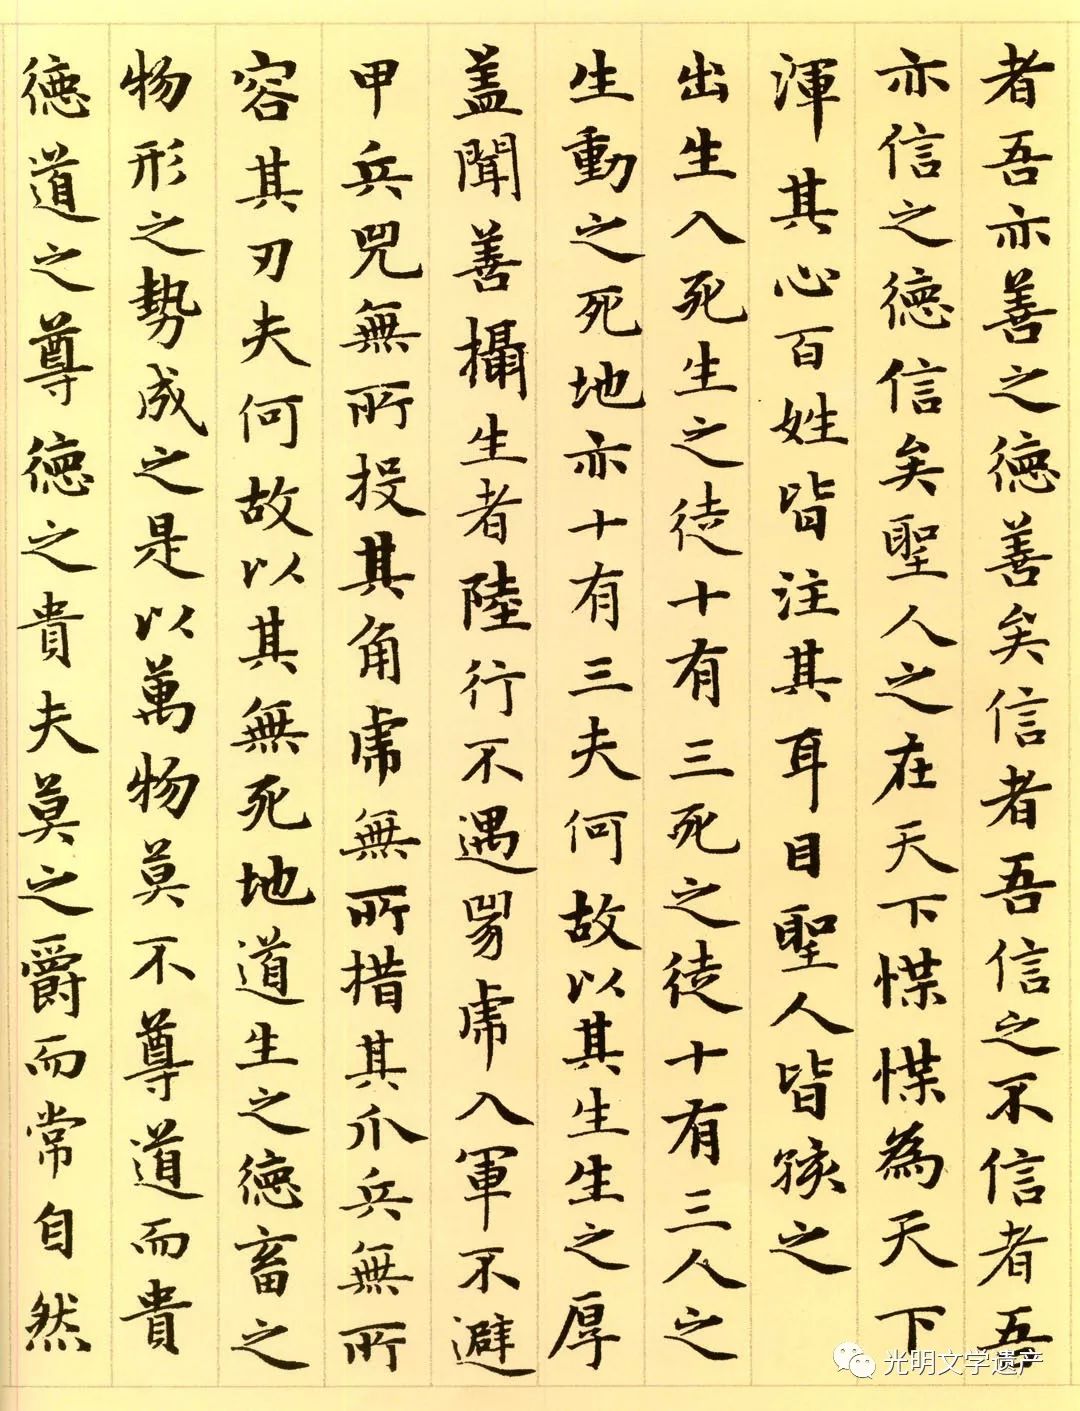 者吾亦善之德善矣信者吾信之不信者吾
亦信之德信矣聖人之在天下惵惵為天下
渾其心百姓皆注其耳目聖人皆孩之
出生入死生之徒十有三死之徒十有三人之
生動之死地亦十有三夫何故以其生生之厚
盖聞善攝生者陸行不遇兕虎入軍不避
甲兵兕無所投其角虎無所措其爪兵無所
容其刃夫何故以其無死地道生之德畜之
物形之勢成之是以萬物莫不尊道而貴
德道之尊德之貴夫莫之爵而常自然
光明文学遗产